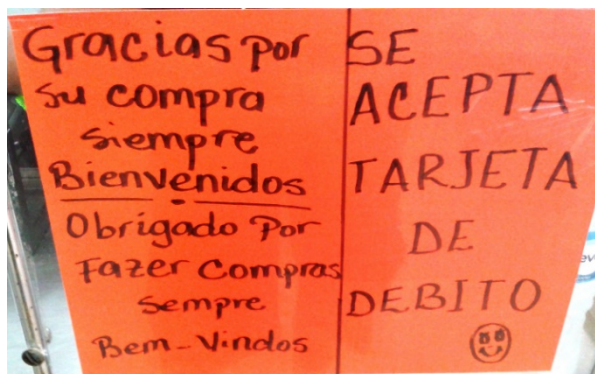 Gracias por
su compra
siempre
Bienvenidos
Obrigado Por
Fazer Compras
Sempre
Bem-Vindos
SE
ACEPTA
TARJETA
DE
DEBITO